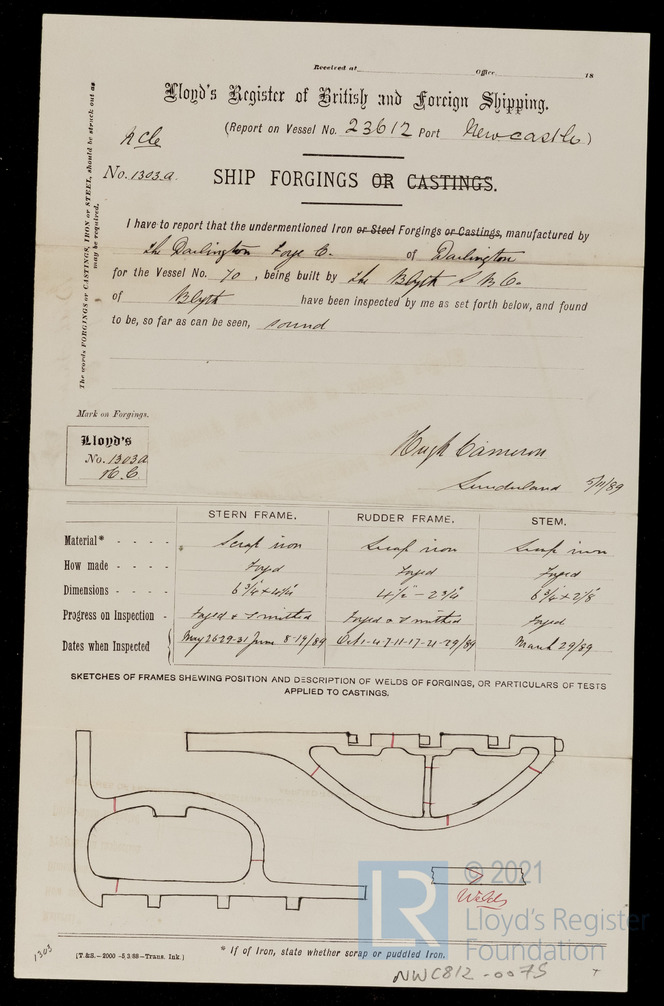 Received at Office 18
Lloyd's Register of British and Foreign Shipping.
(Report on Vessel No. 23612 Port Newcastle)
Acle
No. 1303a
SHIP FORGINGS OR CASTINGS.
The words FORGINGS or CASTINGS, IRON or STEEL, should be struck out as may be required.
I have to report that the undermentioned Iron or Steel Forgings or Castings, manufactured by
The Darlington Forge Co. of Darlington
for the Vessel No. 70, being built by The Blyth S B Co.
of Blyth have been inspected by me as set forth below, and found
to be, so far as can be seen, sound
Mark on Forgings.
Lloyd's
No. 1303a
H.C.
Hugh Cameron
Sunderland 5/11/89
STERN FRAME. RUDDER FRAME. STEM.
Material* Scrap iron Scrap iron Scrap iron
How made Forged Forged Forged
Dimensions
Progress on Inspection Forged & Smithed Forged & Smithed Forged
Dates when Inspected May 26-29-31 June 8-19/89 Oct 1-4-7-11-17-21-29/89 March 29/89
SKETCHES OF FRAMES SHEWING POSITION AND DESCRIPTION OF WELDS OF FORGINGS, OR PARTICULARS OF TESTS
APPLIED TO CASTINGS.
Welds
© 2021
LR
Lloyd's Register
Foundation
* If of Iron, state whether scrap or puddled Iron.
[T.&S.—2000 —5,3 88—Trans. Ink.]
1303
NWC812-0075